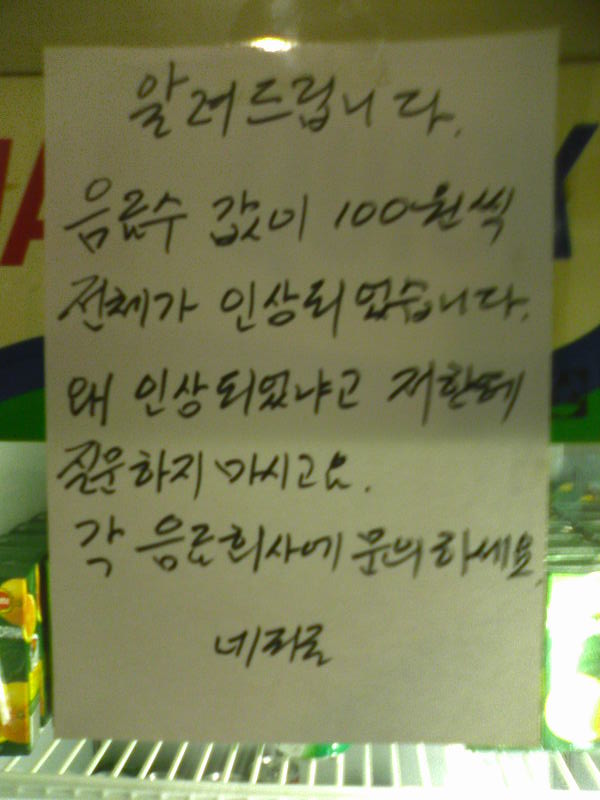 알려드립니다.
음료수 값이 100원씩
전체가 인상되었습니다.
왜 인상되었냐고 저한테
질문하지 마시고요.
각 음료회사에 문의하세요.